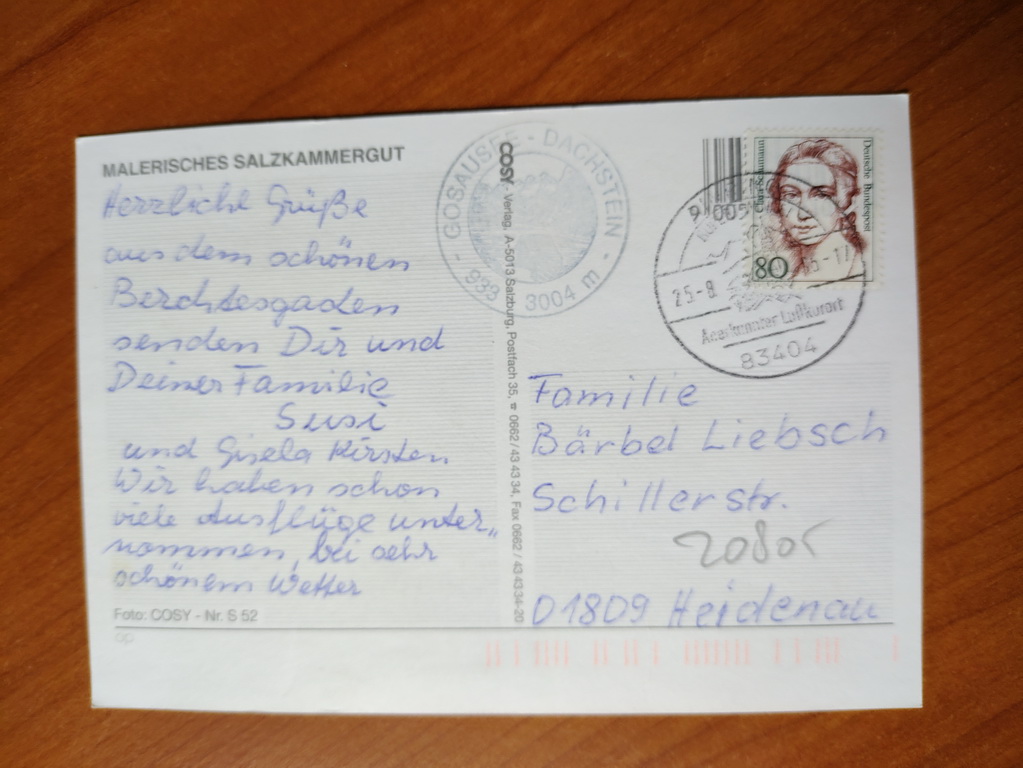 MALERISCHES SALZKAMMERGUT
Herzliche Grüße
aus dem schönen
Berchtesgaden
senden Dir und
Deiner Familie
Susi
und Gisela Kirsten
Wir haben schon
viele Ausflüge unter„
nommen, bei sehr
schönem Wetter
Foto: COSY - Nr. S 52
GOSAUSEE - DACHSTEIN
- 933 - 3004 m -
COSY - Verlag, A-5013 Salzburg, Postfach 35, ☎ 0662 / 43 43 34, Fax 0662 / 43 43 34-20
Deutsche Bundespost
80
25-8
Anerkannter Luftkurort
83404
Familie
Bärbel Liebsch
Schillerstr.
01809 Heidenau